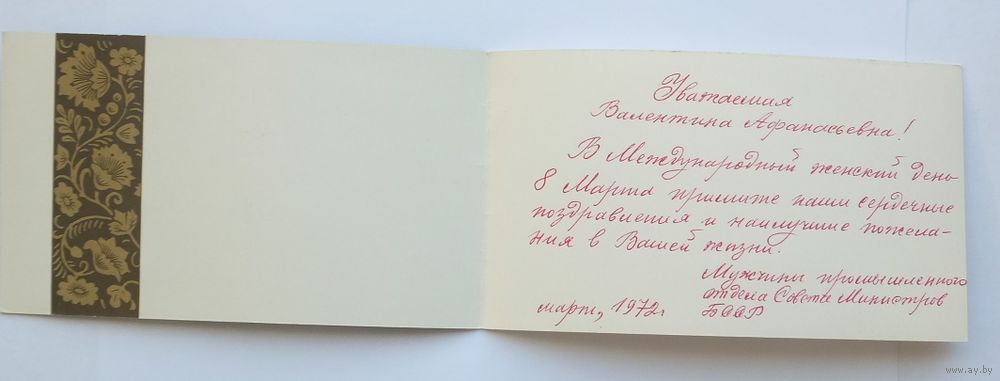 Уважаемая
Валентина Афанасьевна!
В Международный женский день
8 Марта примите наши сердечные
поздравления и наилучшие пожела-
ния в Вашей жизни.
Мужчины промышленного
отдела Совета Министров
БССР
март, 1972г
www.ay.by